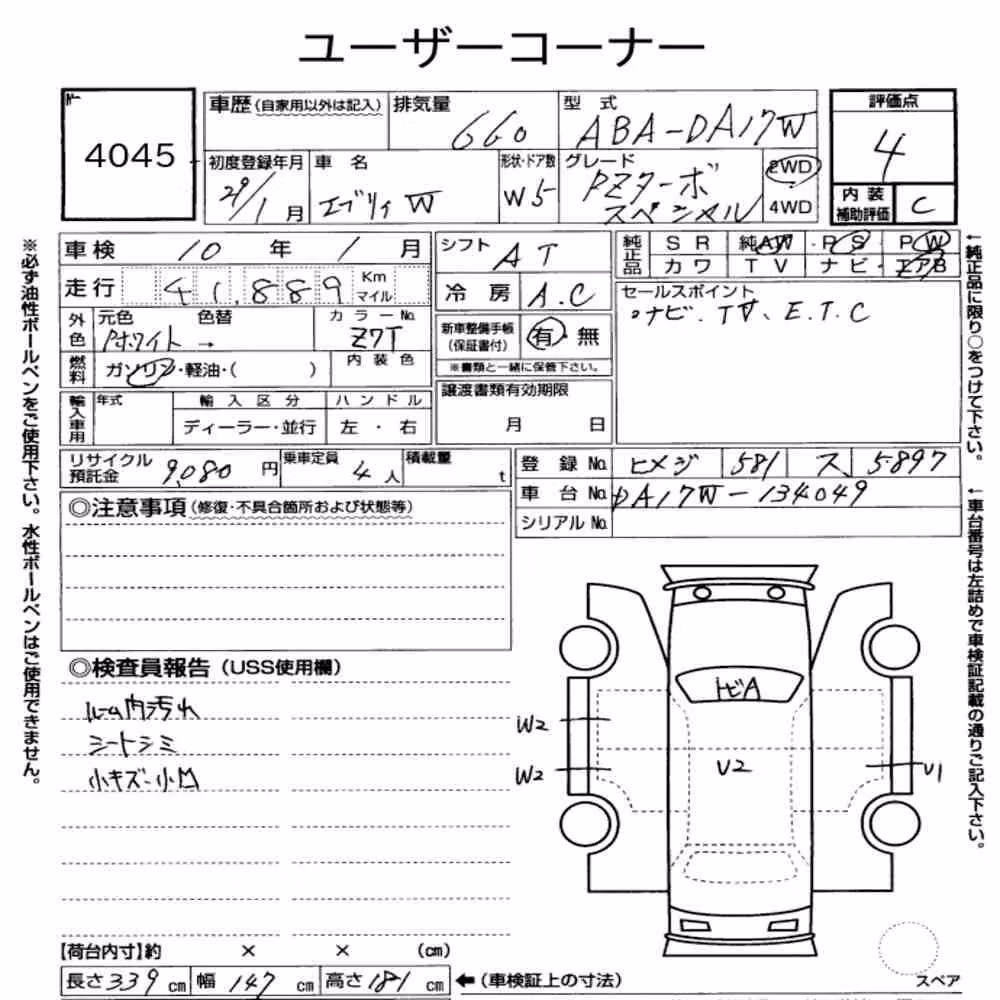 ユーザーコーナー
4045
車歴(自家用以外は記入) 排気量 660 型式 ABA-DA17W
評価点 4
初度登録年月 29/1月 車名 エブリィW 形状・ドア数 W5 グレード PZターボ スペシャル 2WD 4WD
内装補助評価 C
車検 10年 1月 シフト AT 純正品 SR 純AW PS PW
カワ TV ナビ エアB
走行 41,889 Km マイル 冷房 A.C
セールスポイント
ナビ、TV、E.T.C
外色 元色 Pホワイト → 色替 カラーNo. Z7T
新車整備手帳(保証書付) 有・無
※書類と一緒に保管下さい。
燃料 ガソリン・軽油・( ) 内装色
譲渡書類有効期限
月 日
輸入車用 年式 輸入区分 ハンドル
ディーラー・並行 左・右
リサイクル預託金 9,080円 乗車定員 4人 積載量 t
登録No. ヒメジ 581 ス 5897
車台No. DA17W-134049
シリアルNo.
◎注意事項(修復・不具合箇所および状態等)
◎検査員報告(USS使用欄)
ルーム内汚れ
シートシミ
小キズ・小凹
トビA
W2
W2
U2
U1
【荷台内寸】約 × × (cm)
長さ339cm 幅147cm 高さ181cm ←(車検証上の寸法)
スペア
※必ず油性ボールペンをご使用下さい。水性ボールペンはご使用できません。
←純正品に限り○をつけて下さい。
←車台番号は左詰めで車検証記載の通りご記入下さい。